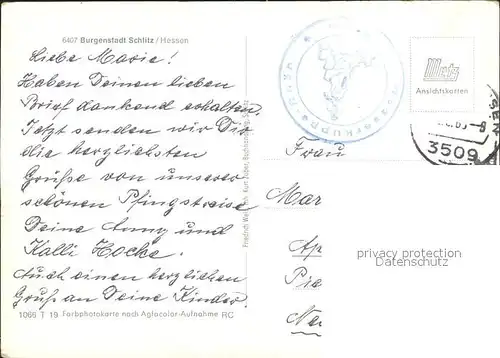 6407 Burgenstadt Schlitz / Hessen
Liebe Marie!
Haben Deinen lieben
Brief dankend erhalten.
Jetzt senden wir Dir
die herzlichsten
Grüße von unserer
schönen Pfingstreise
Deine Anny und
Kalli Hocke.
Auch einen herzlichen
Gruß an Deine Kinder.
1066 T 19 Farbphotokarte nach Agfacolor-Aufnahme RC
Metz
Ansichtskarten
3509
Frau
Mar
Ap
Pre
Ne
privacy protection
Datenschutz